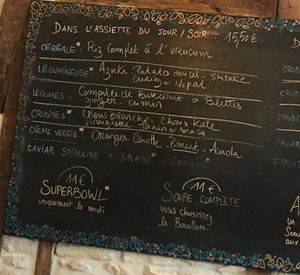 DANS L'ASSIETTE DU JOUR / SOIR - 15,50€
CÉRÉALE* : Riz Complet à l'urucum
LÉGUMINEUSE* : Azuki Patato douce - Shitake
Nopal
LÉGUMES : Compotée de Butternut
gingem - cumin
CRUDITÉS* : Céleri Branche - Choux Kale
vinaigrette Tahin & maca
CRÈME VEGGIE* : Oranges Carotte - Piment - Acerola
CAVIAR SPIRULINE + SALADE
11€
SUPERBOWL*
uniquement le midi
11€
SOUPE COMPLÈTE
vous choisissez
le Bouillon